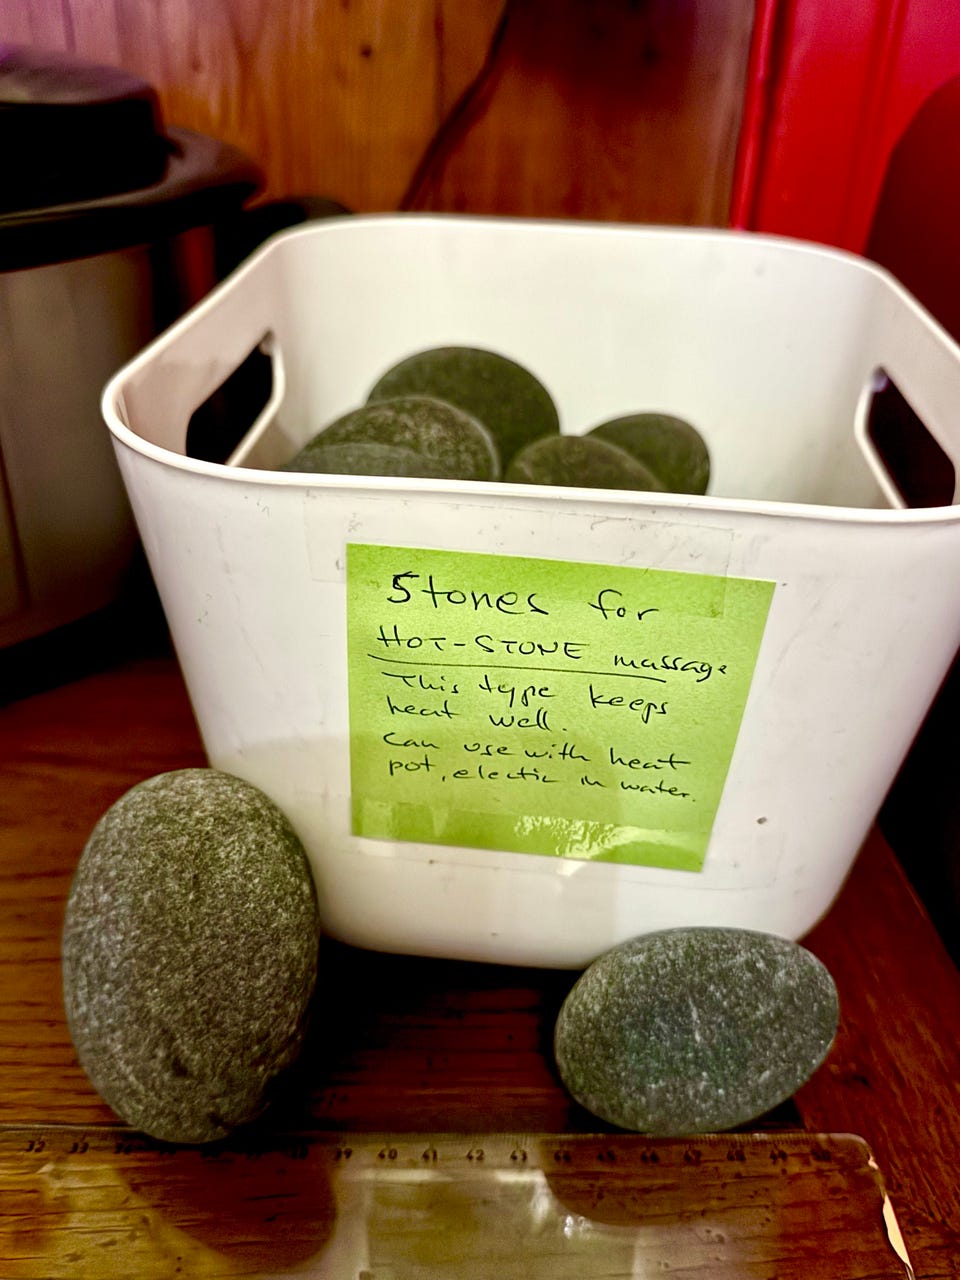 Stones for
HOT-STONE massage
This type keeps
heat well.
Can use with heat
pot, electic in water.
32 33 34 38 39 40 41 42 43 44 45 46 47 48 49 50